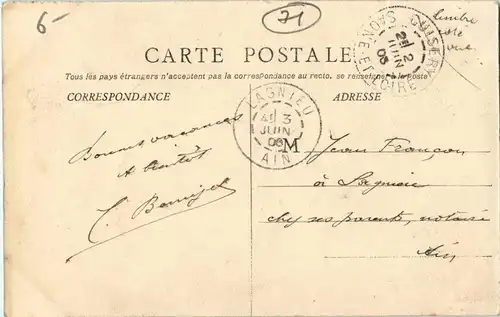 6-
71
timbre
côté
vue
CUISERY
2E
2
JUIN
06
SAONE-ET-LOIRE
CARTE POSTALE
Tous les pays étrangers n'acceptent pas la correspondance au recto, se renseigner à la poste
CORRESPONDANCE
ADRESSE
LAGNIEU
3
JUIN
06
AIN
Bonnes vacances
A bientôt
M Jean Françon
à Lagnieu
chez ses parents, notaire
Ain